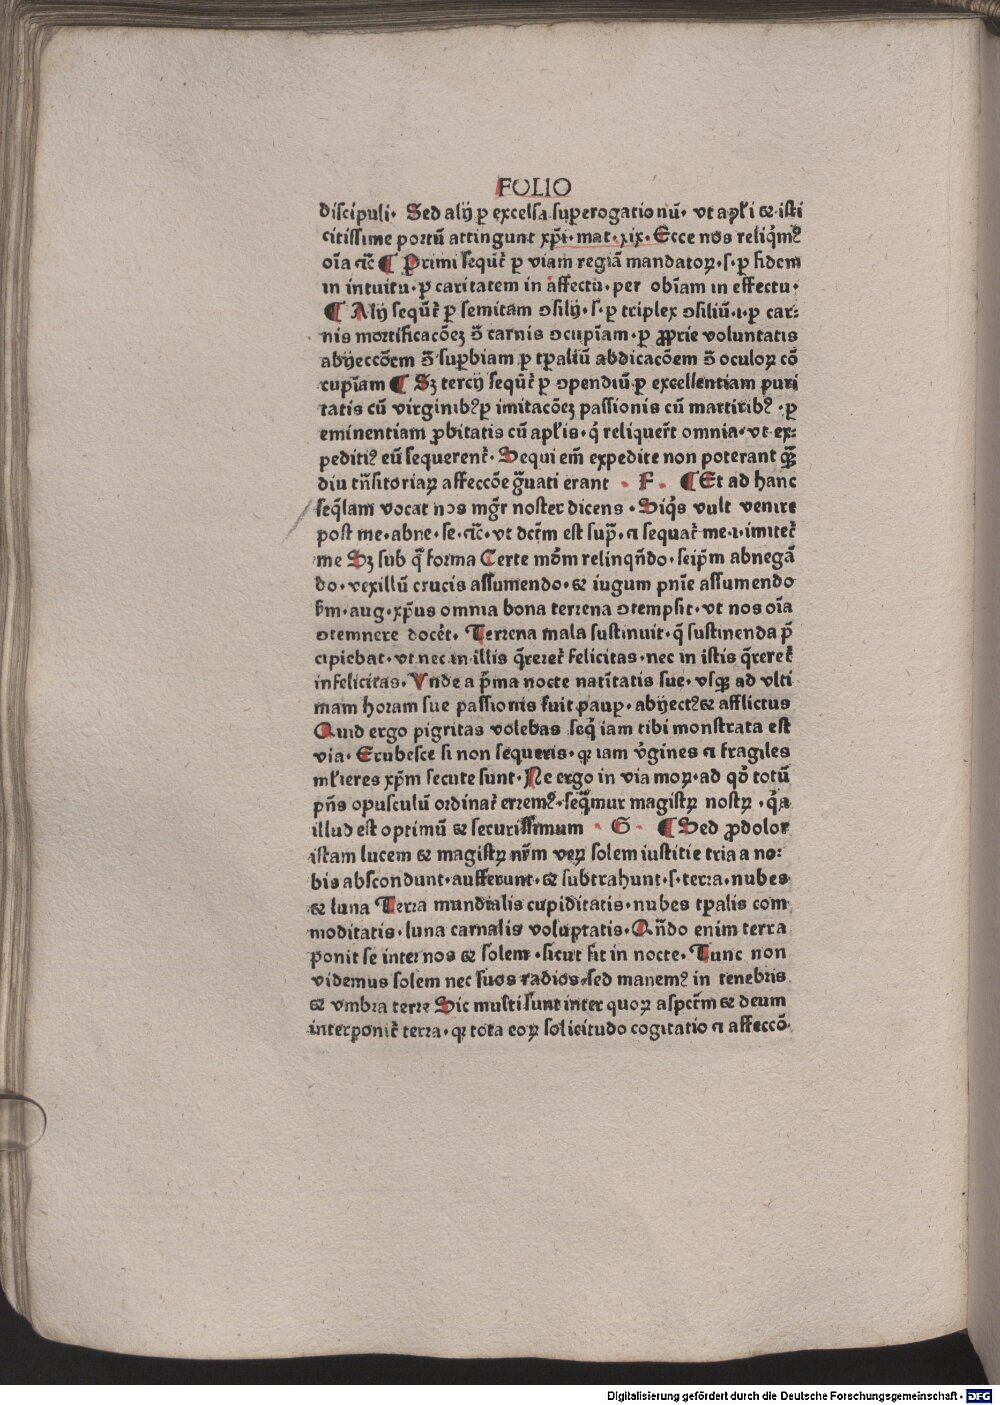 FOLIO
discipuli· Sed alij ꝑ excelsa suꝑerogationū· vt apłi ⁊ isti
citissime portū attingunt xp̄i· mat· xix· Ecce nos reliq̇mꝰ
oīa ⁊c̄ ¶ Primi sequūt̉ ꝑ viam regiā mandatoꝝ·s·ꝑ fidem
in intuitu·ꝑ caritatem in affectu·per obīam in effectu·
¶ Alij sequūt̉ ꝑ semitam ɔsilij·s·ꝑ triplex ɔsiliū·ı·ꝑ car⸗
nis mortificacōeꝫ ɔ̄ carnis ɔcupīam·ꝑ ꝓprie voluntatis
abijeccōem ɔ̄ suꝑbiam ꝑ tꝑaliū abdicacōem ɔ̄ oculoꝝ cō
cupīam ¶ Sꝫ tercij sequūt̉ ꝑ ɔpendiū·ꝑ excellentiam puri
tatis cū virginibꝰ ꝑ imitacōeꝫ passionis cū martiribꝰ ·ꝑ
eminentiam ꝓbitatis cū apłis·q̇ reliquer̄t omnia·vt ex⸗
peditiꝰ eū sequerent̉· Sequi em̄ expedite non poterant qꝫ̄
diu tn̄sitoriaꝝ affeccōe ḡuati erant · F · ¶ Et ad hanc
seq̄lam vocat nos mgr̄ noster dicens · Siq̇s vult venire
post me·abne·se·⁊c̄·vt dc̄tm est sup̄·⁊ sequat̉ me·ı·imitet̉
me Sꝫ sub q̄ forma Certe mōm relinqn̄do·seip̄m abnegā
do·vexillū crucis assumendo·⁊ iugum pnīe assumendo
bm̄·aug·xp̄us omnia bona terrena ɔtempsit·vt nos oīa
ɔtemnere docet̉· Terrena mala sustinuit·q̄ sustinenda p̄
cipiebat·vt nec in illis q̄reret̉ felicitas·nec in istis q̄reret̉
infelicitas· Vnde a p̄ma nocte natītatis sue·vsqꝫ ad vlti
mam horam sue passionis fuit pauꝑ·abijectꝰ ⁊ afflictus
Quid ergo pigritas volebas seq̇ iam tibi monstrata est
via· Erubesce si non sequeris·qꝛ iam v̇gines ⁊ fragiles
młieres xp̄m secute sunt· Ne ergo in via moꝝ·ad qȯ totū
pn̄s opusculū ordinat̉ erremꝰ·seq̄mur magistꝝ nostꝝ ·q̇a
illud est optimū ⁊ securissimum · G · ¶ Sed ꝓdolor
istam lucem ⁊ magistꝝ nr̄m veꝝ solem iustitie tria a no⸗
bis abscondunt·aufferunt·⁊ subtrahunt·s·terra·nubes
⁊ luna Terra mundialis cupiditatis·nubes tꝑalis com
moditatis·luna carnalis voluptatis· Qn̄do enim terra
ponit se inter nos ⁊ solem·sicut fit in nocte· Tunc non
videmus solem nec suos radios·sed manemꝰ in tenebris
⁊ vmbra terre Sic multi sunt inter quoꝝ aspc̄tm ⁊ deum
interponit̉ terra·qꝛ tota eoꝝ solicitudo cogitatio ⁊ affeccō
Digitalisierung gefördert durch die Deutsche Forschungsgemeinschaft - DFG